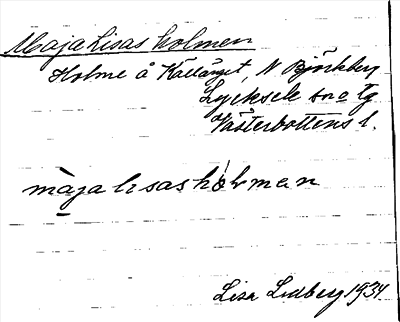 Maja Lisas holmen
Holme å Källänget, N Björkberg
Lycksele sn o tg
Västerbottens l.
màjalisashòlmen
Lisa Lidberg 1934.